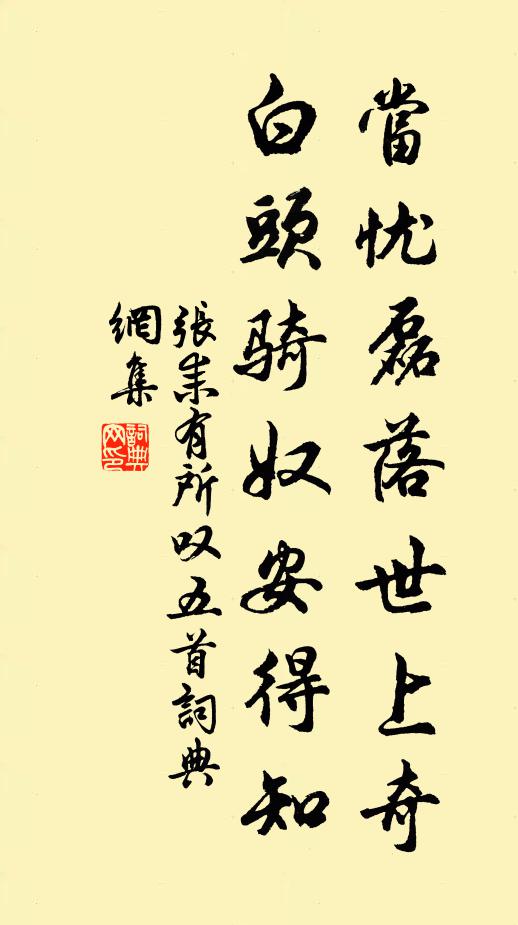 當忧磊落世上奇
白頭骑奴安得知
張耒有所叹五首詞典
網集
詞典
网印